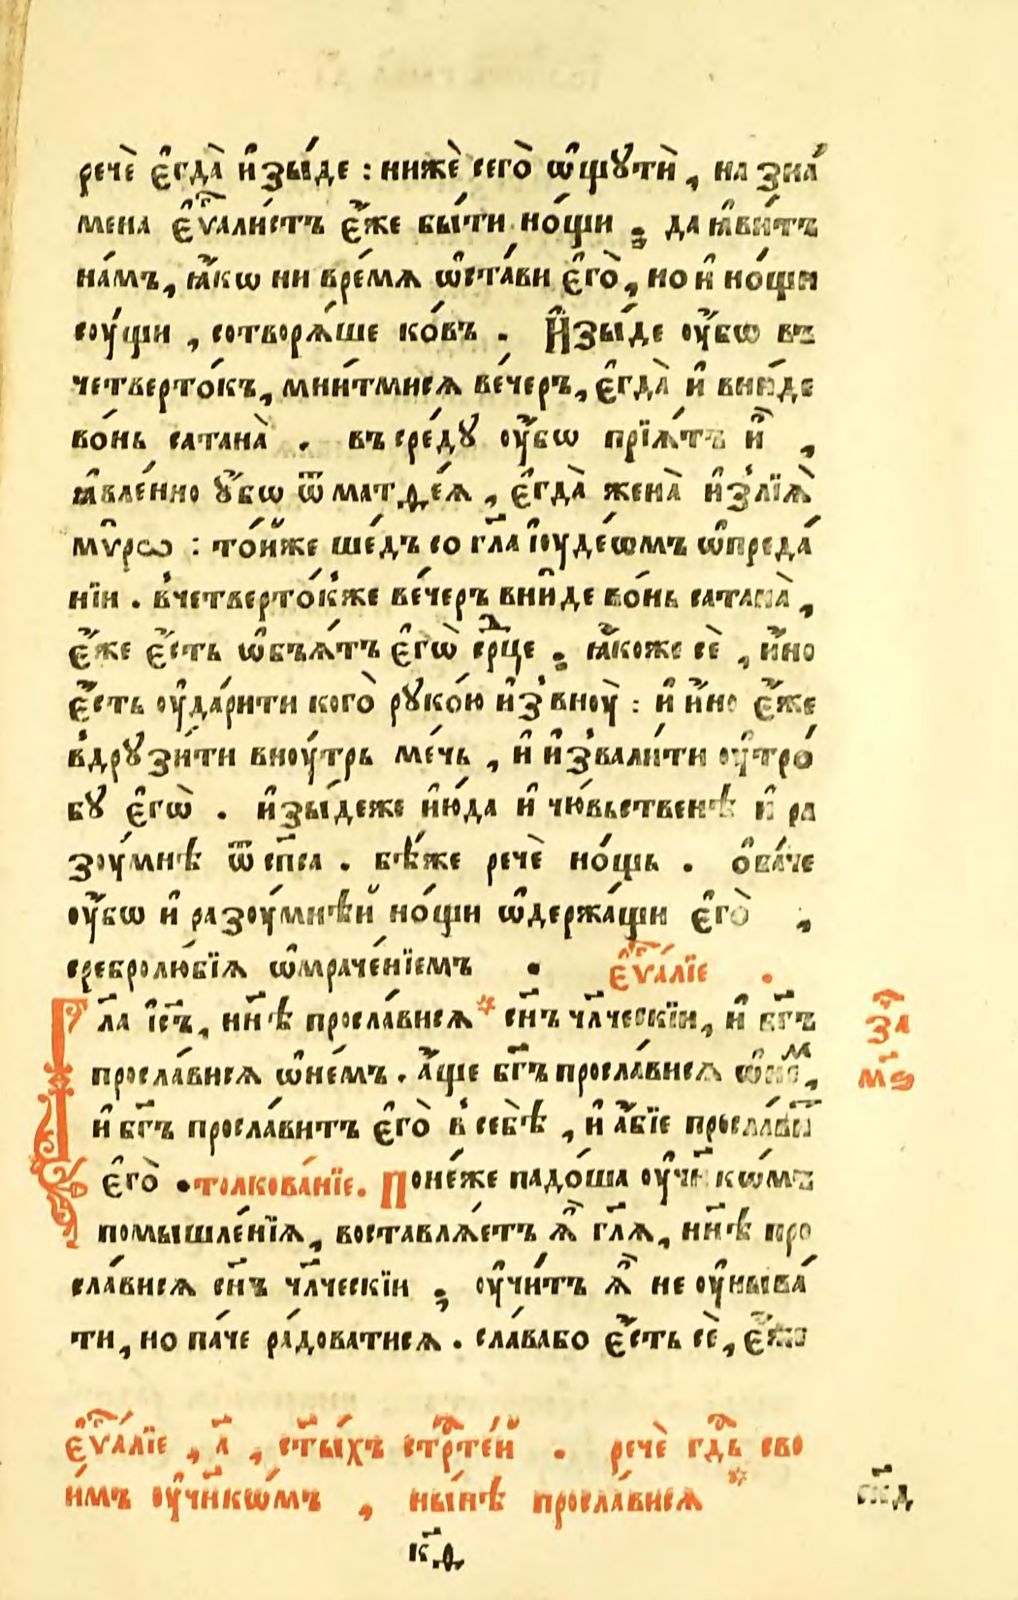 речѐ є҆гда̀ и҆зы́де : нижѐ сего̀ ѡ҆щꙋтѝ , на зна́
мена є҆ѵⷢ҇алистъ є҆́же бы́ти но́щи ; да ꙗ҆ви́тъ
на́мъ , ꙗ҆́кѡ ни вре́мѧ ѡ҆ста́ви є҆го̀ , но и҆ но́щи
соу́щи , сотворѧ́ше ко́въ . И҆зы́де оу҆́бѡ въ
четверто́къ , мни́тмисѧ ве́черъ , є҆гда̀ и҆ вни́де
во́нь сатана̀ . въ сре́дꙋ оу҆́бѡ прїѧ́тъ и҆̀ ,
ꙗ҆вле́нно ᲂу҆́бѡ ѿ матѳе́ѧ , є҆гда̀ жена̀ и҆злїѧ̀
мѵ́рѡ : то́йже ше́дъ со гл҃а і҆ꙋде́ѡмъ ѡ҆преда́
нїи . в̾четверто́к̾же ве́черъ вни́де во́нь сатана̀ ,
є҆́же є҆́сть ѡ҆б̾ѧ́тъ є҆гѡ̀ срⷣце ; ꙗ҆́коже сѐ , и҆́но
є҆́сть оу҆да́рити кого̀ рꙋко́ю и҆з̾вноу̀ : и҆ и҆́но є҆́же
в̾дрꙋзи́ти вноу́трь ме́чь , и҆ и҆з̾вали́ти оу҆тро́
бꙋ є҆гѡ̀ . и҆зы́деже и҆ю́да и҆ чю́вьственѣ и҆ ра
зоу́мнѣ ѿ сп҃са . бѣ́же речѐ но́щь . ѻ҆ба́че
оу҆́бѡ и҆ разоу́мнѣй но́щи ѡ҆держа́щи є҆го̀ ,
сребролю́бїѧ ѡ҆мраче́нїемъ . є҆ѵⷢ҇а́лїе .
Гл҃а і҆с҃ъ , нн҃ѣ просла́висѧ * сн҃ъ чл҃ческїи , и҆ бг҃ъ
просла́висѧ ѡ҆не́мъ . а҆́ще бг҃ъ просла́висѧ ѡ҆неⷨ ,
и҆ бг҃ъ просла́витъ є҆го̀ в̾ себѣ̀ , и҆ а҆́бїе просла́виⷮ
є҆го̀ . толкова́нїе . Поне́же падо́ша оу҆чн҃кѡ́мъ
помышле́нїѧ , воставлѧ́етъ ѧ҆̀ гл҃ѧ , нн҃ѣ про
сла́висѧ сн҃ъ чл҃ческїи ; оу҆чи́тъ ѧ҆̀ не оу҆ныва́
ти , но па́че ра́доватисѧ . сла́вабо є҆́сть сѐ , є҆́же
заⷱ҇
м҃ѕ
є҆ѵⷢ҇а́лїе , а҃ , ст҃ы́хъ стрⷭ҇те́й . речѐ гдⷭ҇ь сво
и́мъ оу҆чн҃кѡ́мъ , ны́нѣ просла́висѧ *
ск҃д
к҃ѳ.